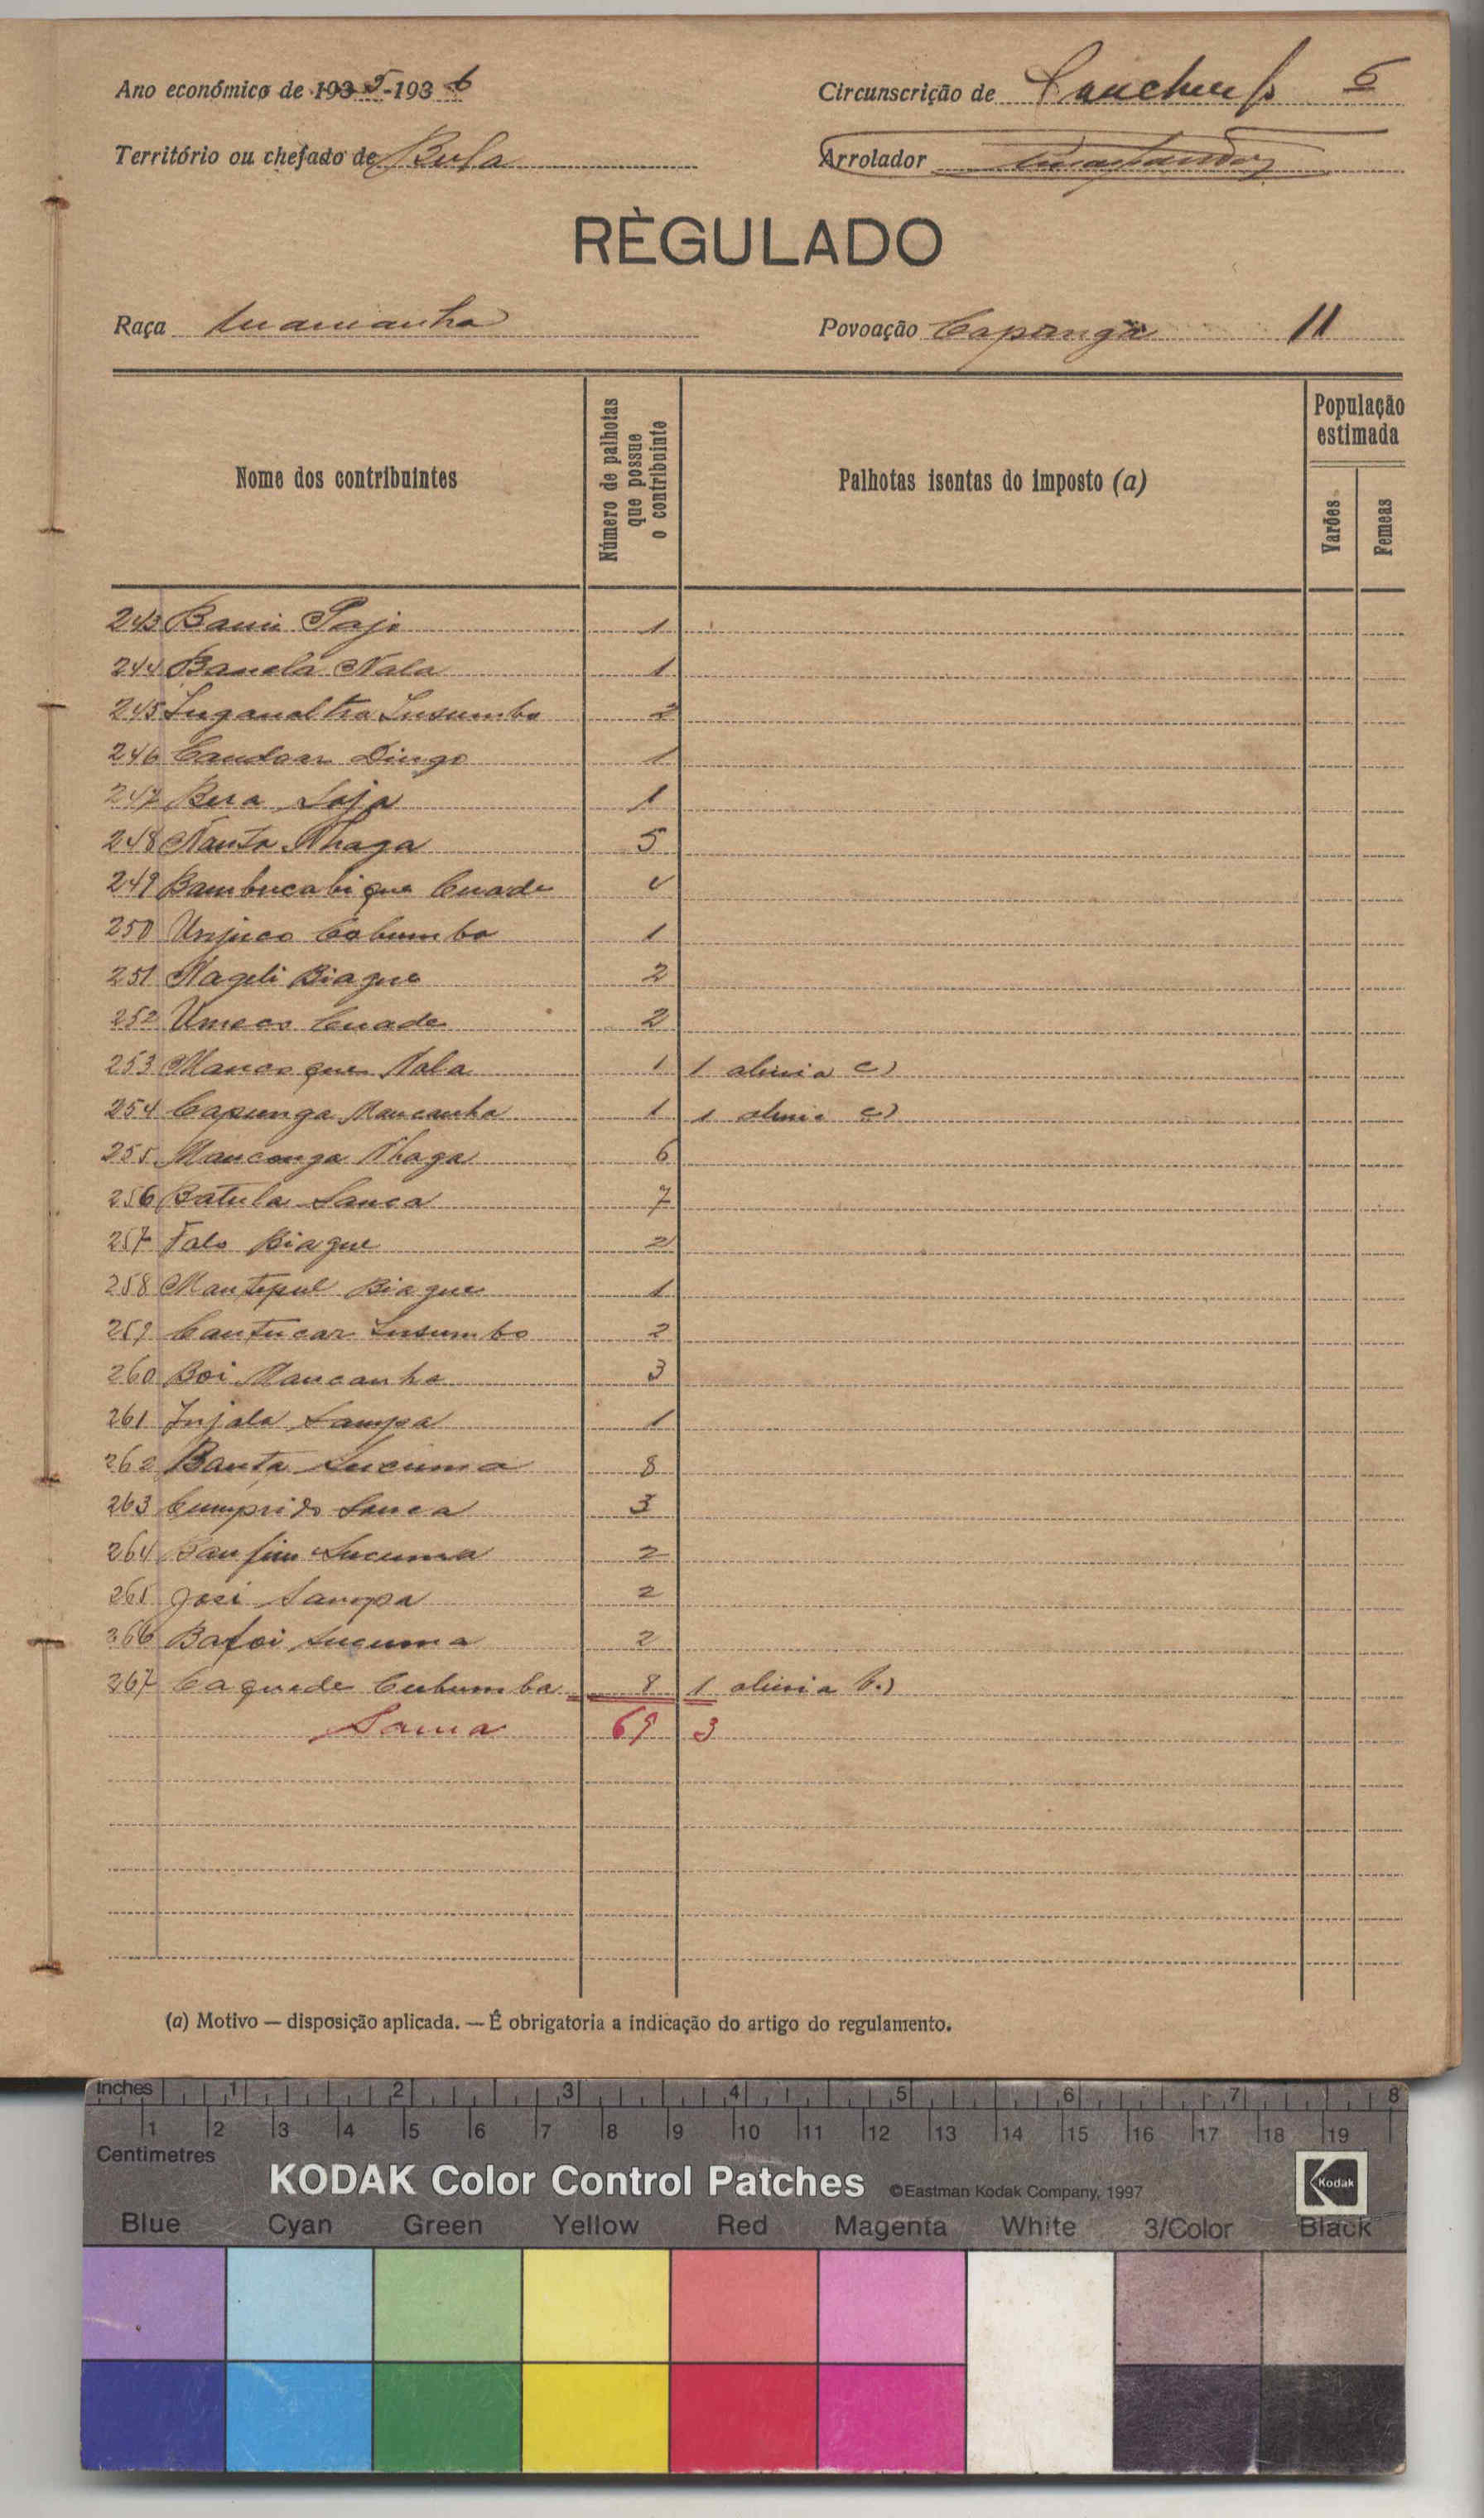 Ano económico de 1935-1936
Circunscrição de 6
Território ou chefado de Bula
Arrolador
RÈGULADO
Raça Mancanha
Povoação Capunga 11
Nome dos contribuintes
Número de palhotas que possue o contribuinte
Palhotas isentas do imposto (a)
População estimada
Varões
Femeas
243 1
244 Banela Nala 1
245 2
246 Dingo 1
247 1
248 Nhaga 5
249 Bambucabique Cuade 4
250 1
251 Biague 2
252 Cuade 2
253 Mancoque Nala 1 1 alinia c)
254 Capunga Mancanha 1 1 alinia c)
255 Manconga Nhaga 6
256 Batula Sanca 7
257 Falo Biague 2
258 Mantepul Biague 1
259 Cantucar Insumbo 2
260 Boi Mancanha 3
261 Injala Sampa 1
262 Banta Lucuma 8
263 Cumprido Sanca 3
264 Lucuma 2
265 José Sampa 2
266 Bafoi Lucuma 2
267 Caquede Cubumba 8 1 alinia b.)
Soma 69 3
(a) Motivo — disposição aplicada. — É obrigatoria a indicação do artigo do regulamento.
Inches 1 2 3 4 5 6 7 8
1 2 3 4 5 6 7 8 9 10 11 12 13 14 15 16 17 18 19
Centimetres
KODAK Color Control Patches ©Eastman Kodak Company, 1997 Kodak
Blue Cyan Green Yellow Red Magenta White 3/Color Black